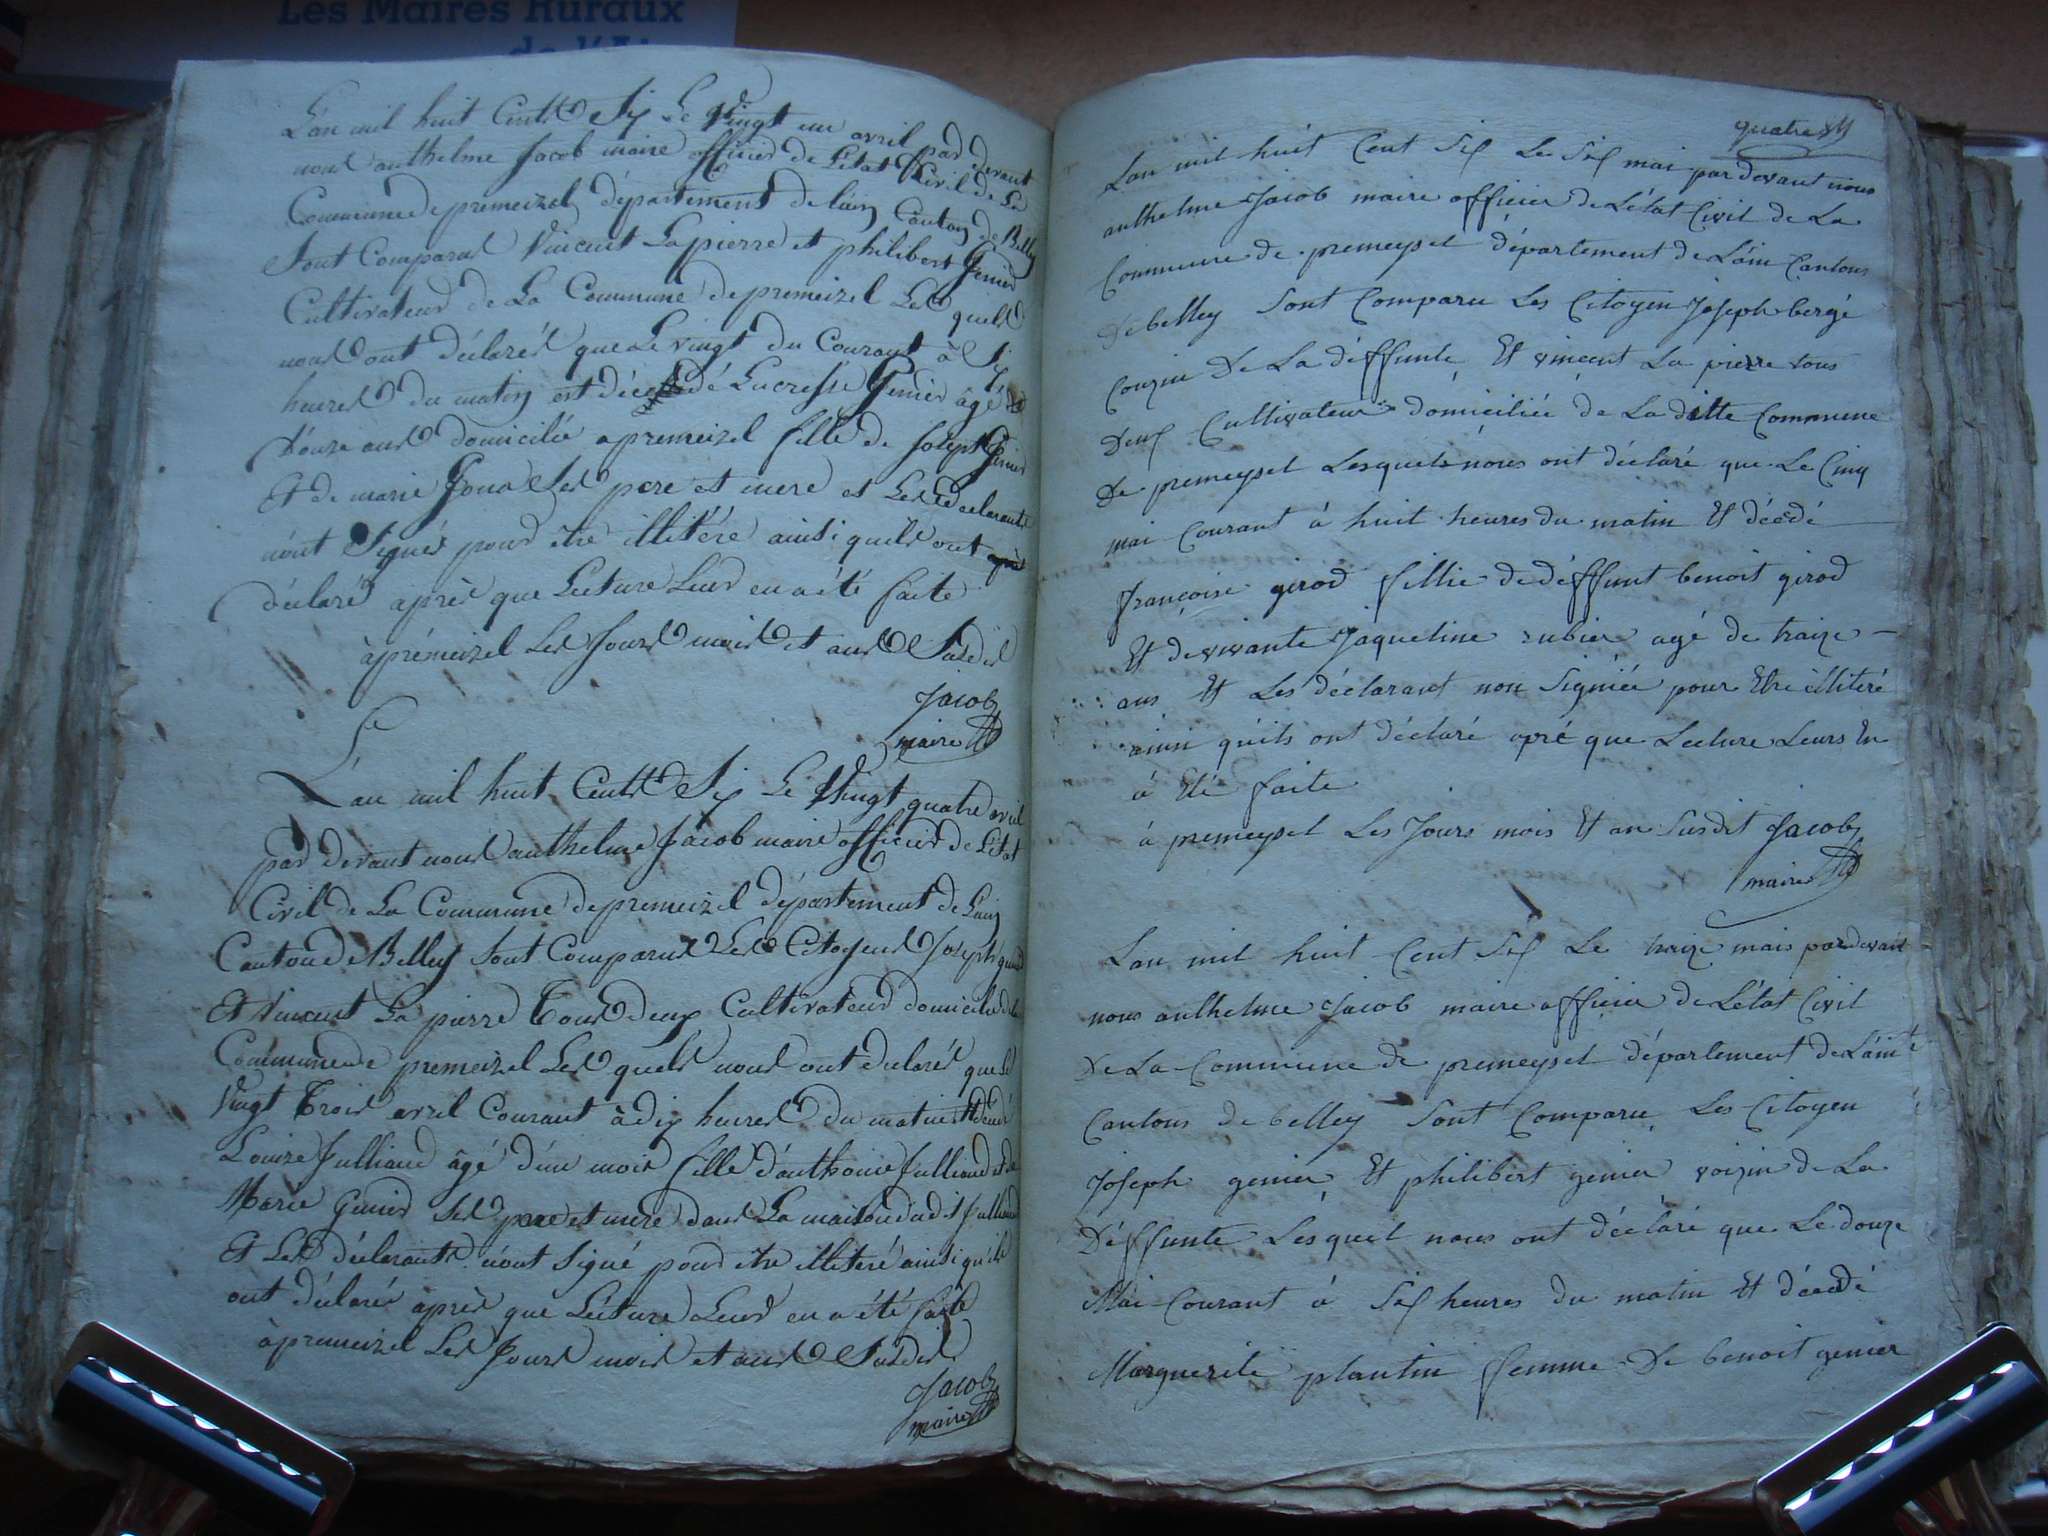 Les Maires Ruraux
de l'Ain
L'an mil huit Cents Six Le vingt un avril par devant
nous anthelme Jacob maire officier de L'état Civil de La
Commune de premeizel département de lain Canton de Belley
Sont Comparus Vincent Lapierre et philibert Genier
Cultivateurs de La Commune de premeizel Les quels
nous ont déclarés que Le vingt du Courant à Six
heures du matin est décedé Lucresse Genier âgé de
douze ans domiciliée a premeizel fille de Joseph Genier
Et de marie ses pere et mere et Les declarants
n'ont Signés pour être illitére ainsi quels ont
déclaré après que Lecture Leur en a été faite
à prémeizel Les Jours mois et ans Susdit
Jacob
maire
L'an mil huit Cents Six Le Vingt quatre avril
par devant nous anthelme Jacob maire officier de L'état
Civil de La Commune de premeizel département de Lain
Canton de Belley Sont Comparus Les Citoyens Joseph
Et Vincent La pierre Tous deux Cultivateurs domicilié de la
Commune de premeizel Les quels nous ont déclarés que Le
Vingt Trois avril Courant à dix heures du matin
Louise Julliand âgé d'un mois fille d'anthoine Julliand et de
Marie Genier Ses pere et mere dans La maison dudit Julliand
Et Les déclarants n'ont Signé pour être illiteré ainsi qu'ils
ont déclarés après que Lecture Leur en a été faite
à premeizel Les Jours mois et ans Susdit
Jacob
maire
quatre
Lan mil huit Cent Six Le Six mai par devant nous
anthelme Jacob maire officier de L'état Civil de La
Commune de premeysel département de Lain Cantons
De belley Sont Comparu Les Citoyen Joseph bergé
Couzin De La déffunte Et vincent La pierre tous
Deux Cultivateur domiciliée de La ditte Commune
De premeysel Lesquels nous ont déclaré que Le Cinq
mai Courant à huit heures du matin Et décédé
françoise girod fillie de déffunt benoit girod
Et de vivante Jaqueline rubier agé de traize
ans Et Les déclarant non Signiée pour Etre illiteré
ainsi quils ont déclaré apré que Lecture Leurs En
à Eté faite
à premeysel Les Jours mois Et an Susdit Jacob
maire
Lan mil huit Cent Six Le traize mais par devant
nous anthelme Jacob maire officier de L'état Civil
De La Commune de premeysel département de Lain
Cantons de belley Sont Comparu Les Citoyen
Joseph genier Et philibert genier voizin de La
Déffunte Lesquel nous ont déclaré que Le douze
Mai Courant à Six heures du matin Et décédé
Marguerite plantin femme De benoit genier